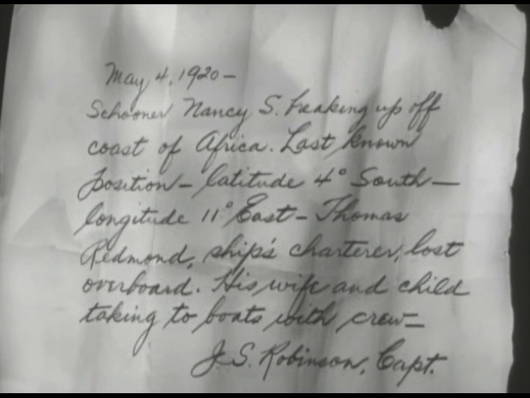 May 4, 1920-
Schooner Nancy S. breaking up off
coast of Africa. Last known
position - latitude 4° South -
longitude 11° East - Thomas
Redmond, ship's charterer, lost
overboard. His wife and child
taking to boats with crew-
J. S. Robinson, Capt.